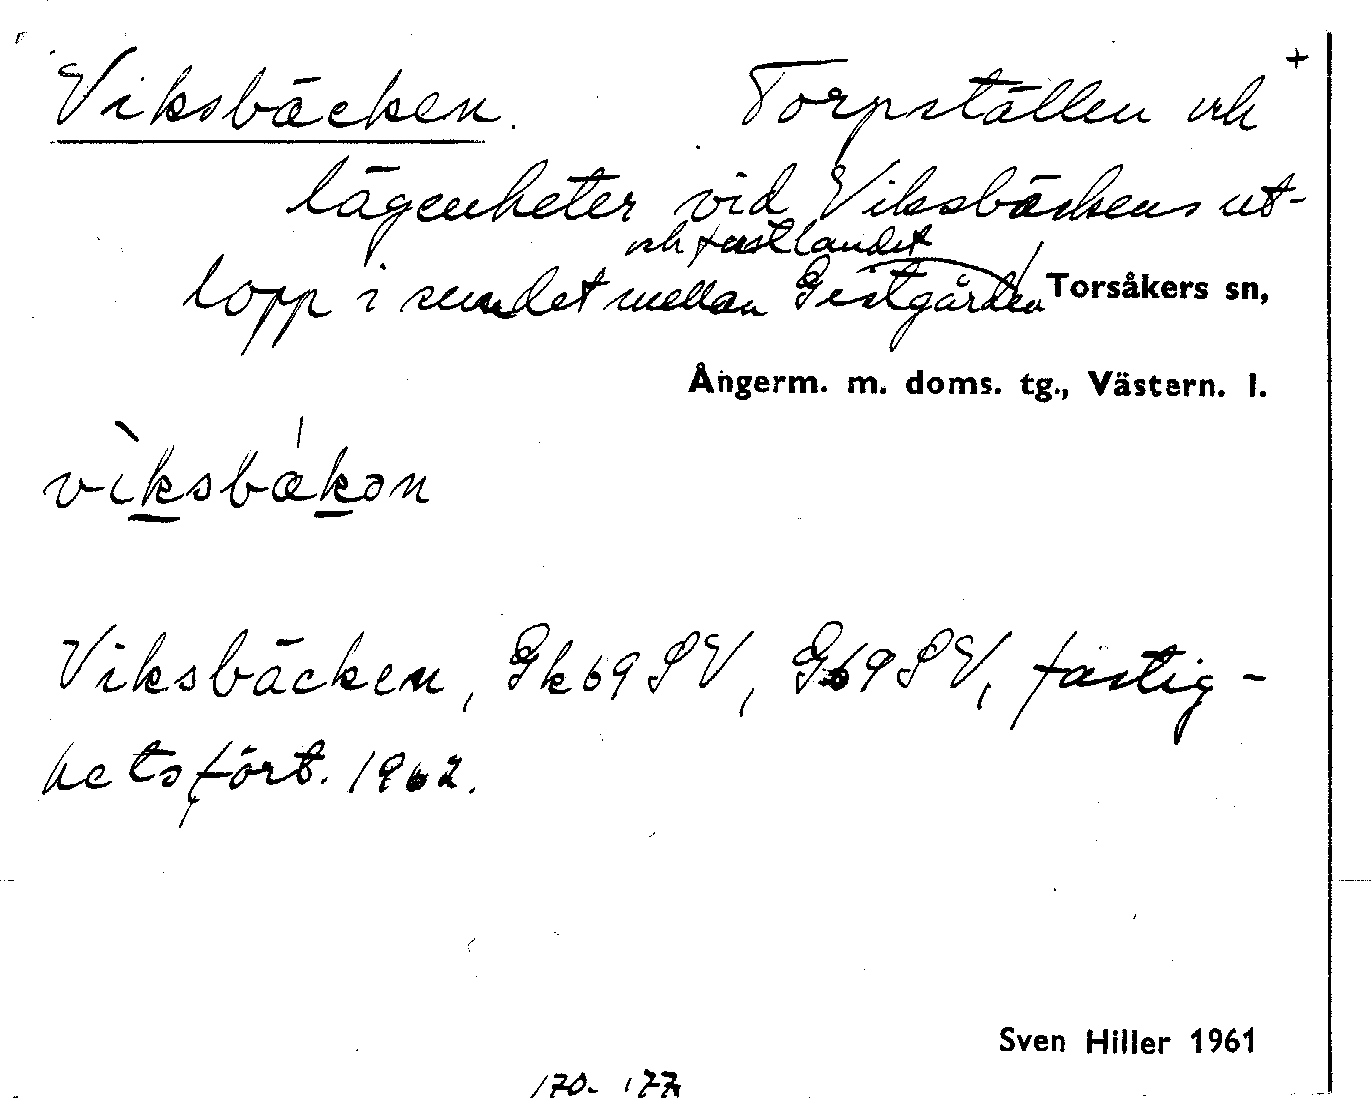 Viksbäcken. Torpställen och +
lägenheter vid Viksbäckens ut-
och fastlandet
lopp i sundet mellan Gistgården
Torsåkers sn,
Ångerm. m. doms. tg., Västern. l.
vìksbǽkən
Viksbäcken, Gk69SV, G69SV, fastig-
hetsfört. 1962.
Sven Hiller 1961
170- 177